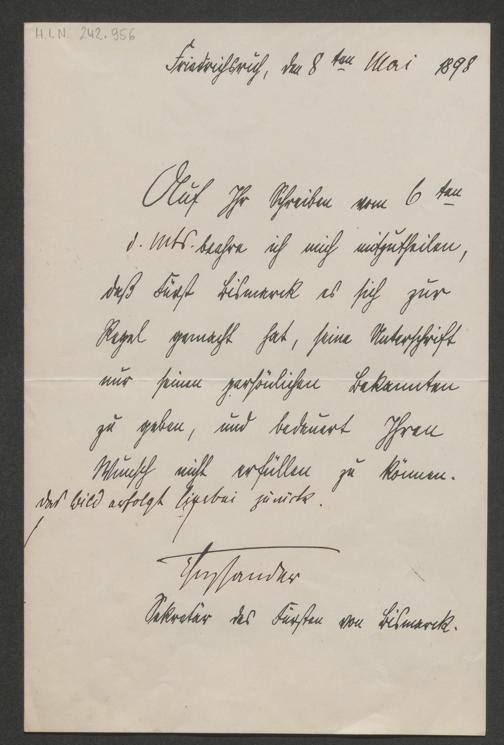 H.I.N. 242.956
Friedrichsruh, den 8ten Mai 1898
Auf Ihr Schreiben vom 6ten
d. Mts. beehre ich mich mitzutheilen,
daß Fürst Bismarck es sich zur
Regel gemacht hat, seine Unterschrift
nur seinen persönlichen Bekannten
zu geben, und bedauert Ihren
Wunsch nicht erfüllen zu können.
Das Bild erfolgt hierbei zurück.
Chrysander
Sekretär des Fürsten von Bismarck.